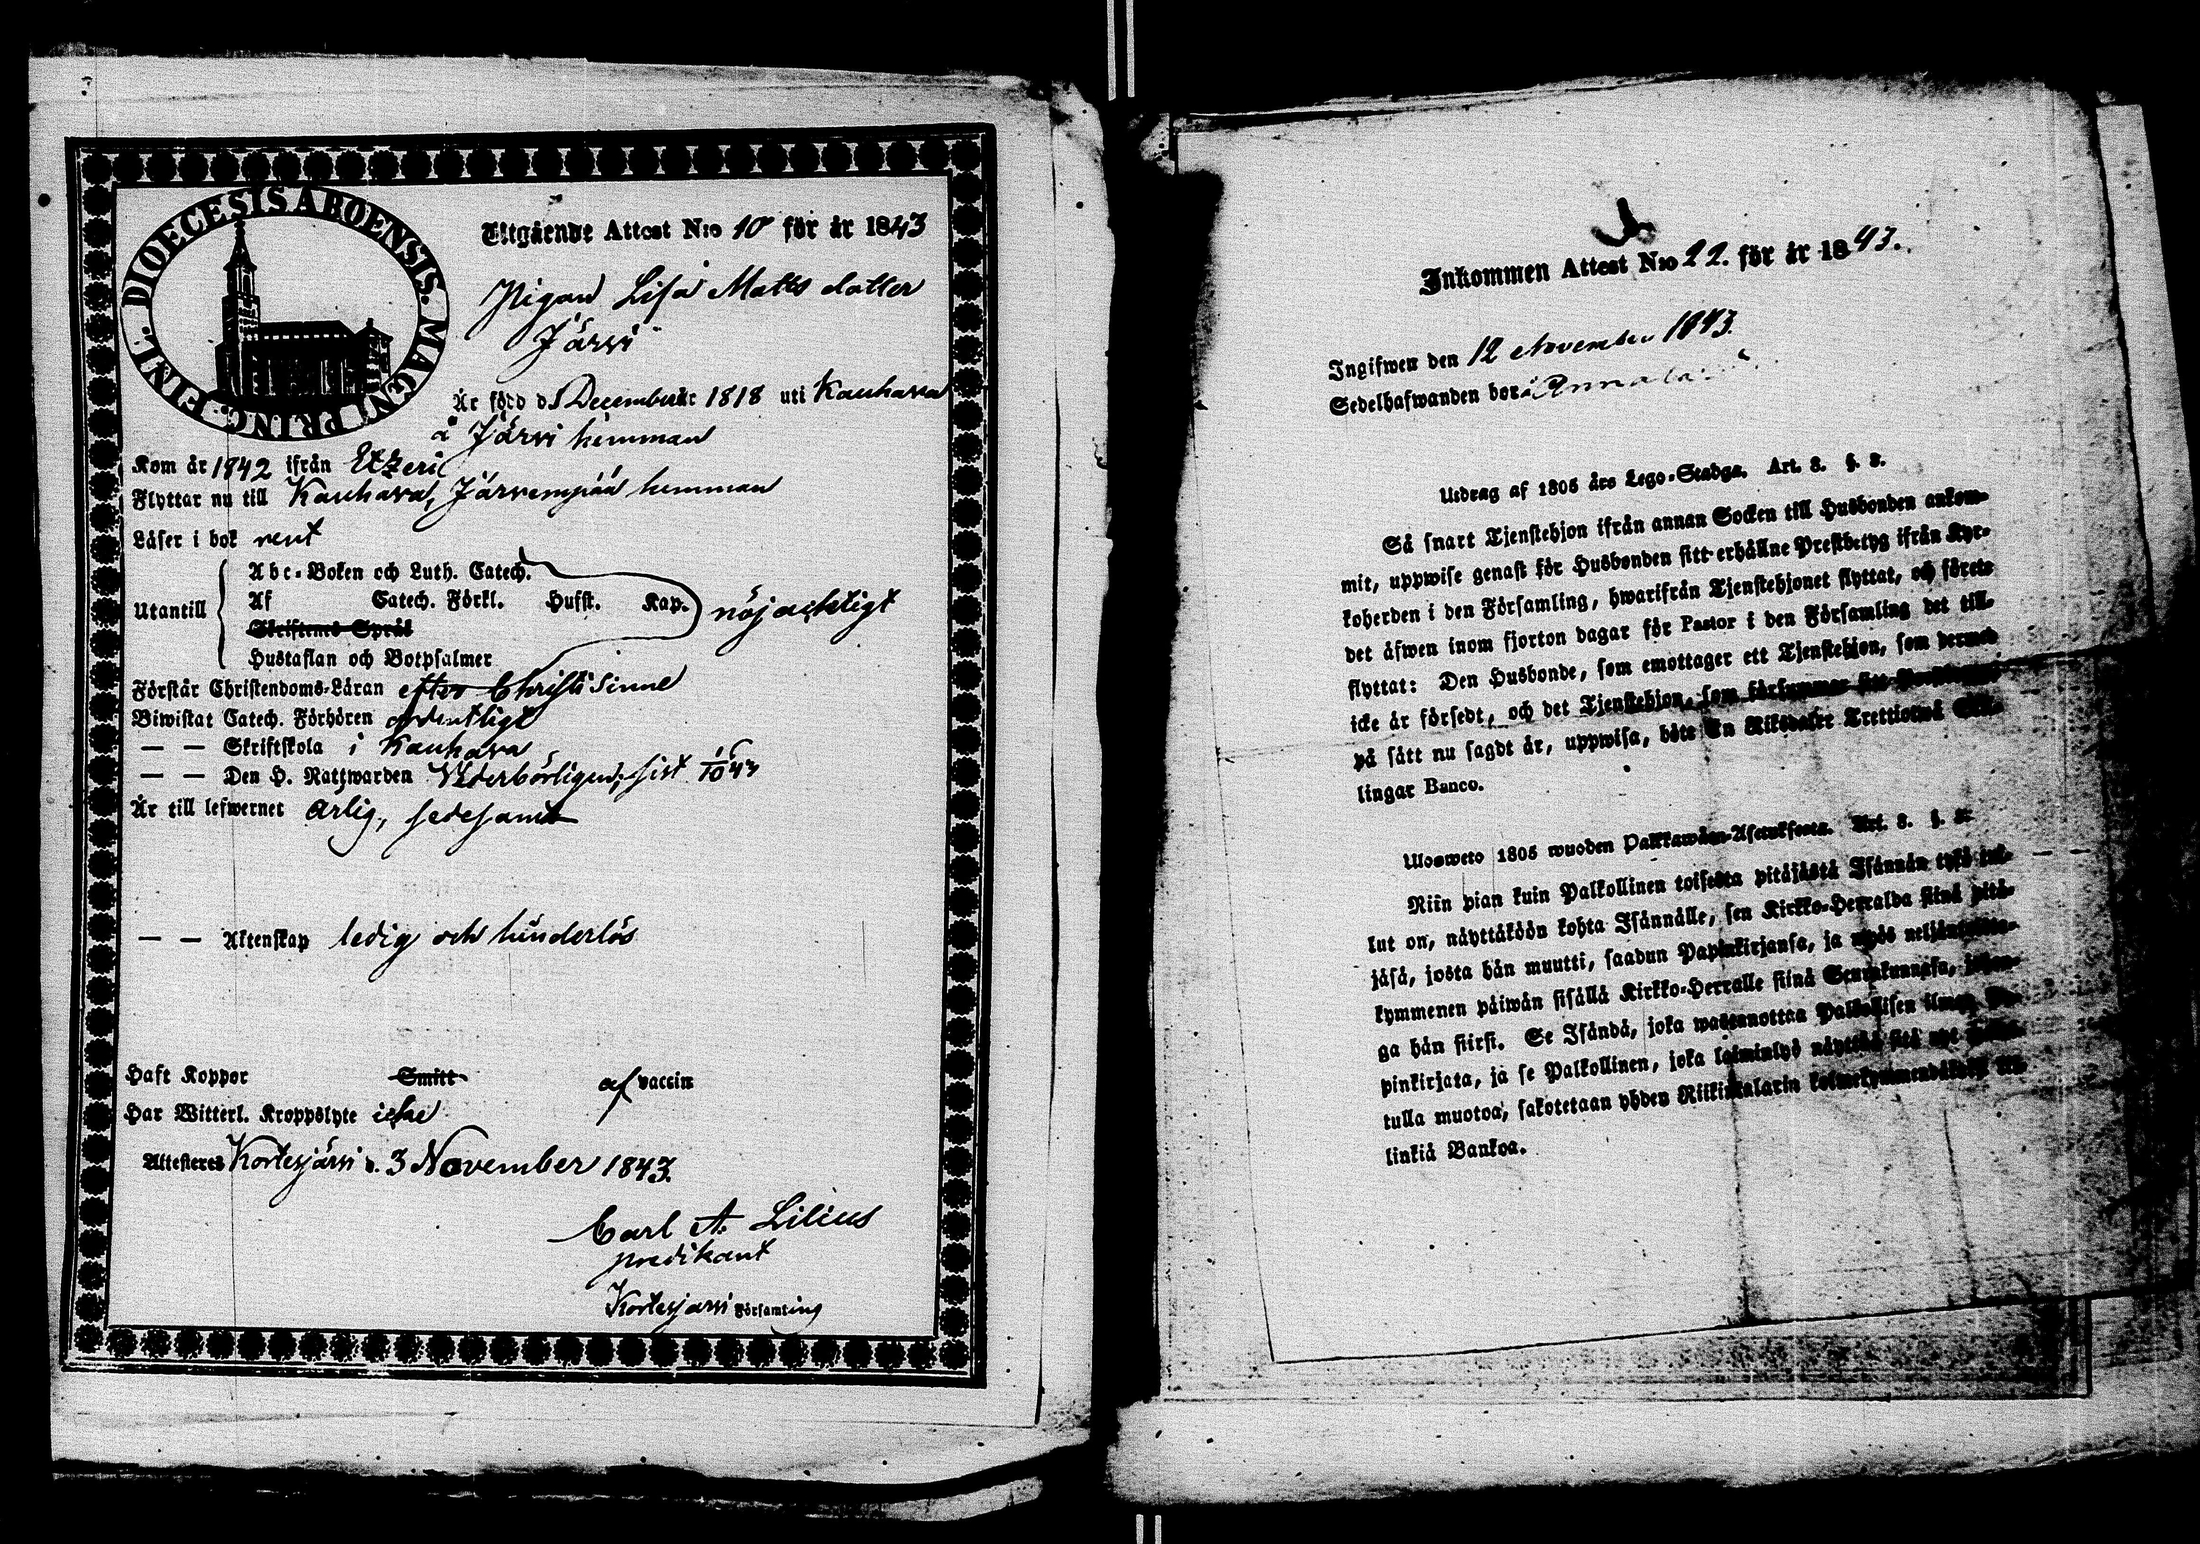 DIOECESIS ABOENSIS. MAGNI PRINC. FINL.
Utgående Attest N:o 10 för år 1843
Pigan Lisa Matts dotter
Järvi
Är född d. 5 December år 1818 uti Kauhava
å Järvi hemman
Kom år 1842 ifrån Etzeri
Flyttar nu till Kauhava, Järvenpää hemman
Läser i bok rent
Utantill
Abc-Boken och Luth. Catech.
Af Catech. Förkl. Husst. Kap.
Skriftens Språk
Hustaflan och Botpsalmer
nöjachtigt
Förstår Christendoms-Läran efter Christi Sinne
Biwistat Catech. Förhören ordentligt
— — Skriftskola i Kauhava
— — Den H. Nattwarden Wederbörligen, sist 1/10 43
Är till lefwernet ärlig, sedesamt
— — Äktenskap ledig och hinderlös
Haft Koppor Smitt af vaccin
Har Witterl. Kroppslyte icke
Attesteras Kortesjärvi d. 3 November 1843.
Carl A. Lilius
predikant
Kortesjärvi Församling
Inkommen Attest N:o 22. för år 1843.
Ingifwen den 12 November 1843.
Sedelhafwanden bor i
Utdrag af 1805 års Lego-Stadga. Art. 3. §. 8.
Så snart Tjenstehjon ifrån annan Socken till Husbonden ankom-
mit, uppwise genast för Husbonden sitt erhållne Prestbetyg ifrån Kyr-
koherden i den Församling, hwarifrån Tjenstehjonet flyttat, och förete
det äfwen inom fjorton dagar för Pastor i den Församling det till-
flyttat: Den Husbonde, som emottager ett Tjenstehjon, som dermed
icke är försedt, och det Tjenstehjon, som försummar sitt Prestbetyg
på sätt nu sagdt är, uppwisa, böte En Riksdaler Trettiotwå Skil-
lingar Banco.
Ulosweto 1805 wuoden Palkkawäen-Asetuksesta. Art. 3. §. 8.
Niin pian kuin Palkollinen toisesta pitäjästä Isännän tykö tul-
lut on, näyttäköön kohta Isännälle, sen Kirkko-Herralda siinä pitä-
jäsä, josta hän muutti, saadun Papinkirjansa, ja myös neljäntoista-
kymmenen päiwän sisällä Kirkko-Herralle siinä Seurakunnasa, johon-
ga hän siirsi. Se Isändä, joka wastanottaa Palkollisen ilman Pa-
pinkirjata, ja se Palkollinen, joka laiminlyö näyttää sitä nyt
tulla muotoa, sakotetaan yhden Riikintalarin kolmekymmendäkaksi
linkiä Bankoa.